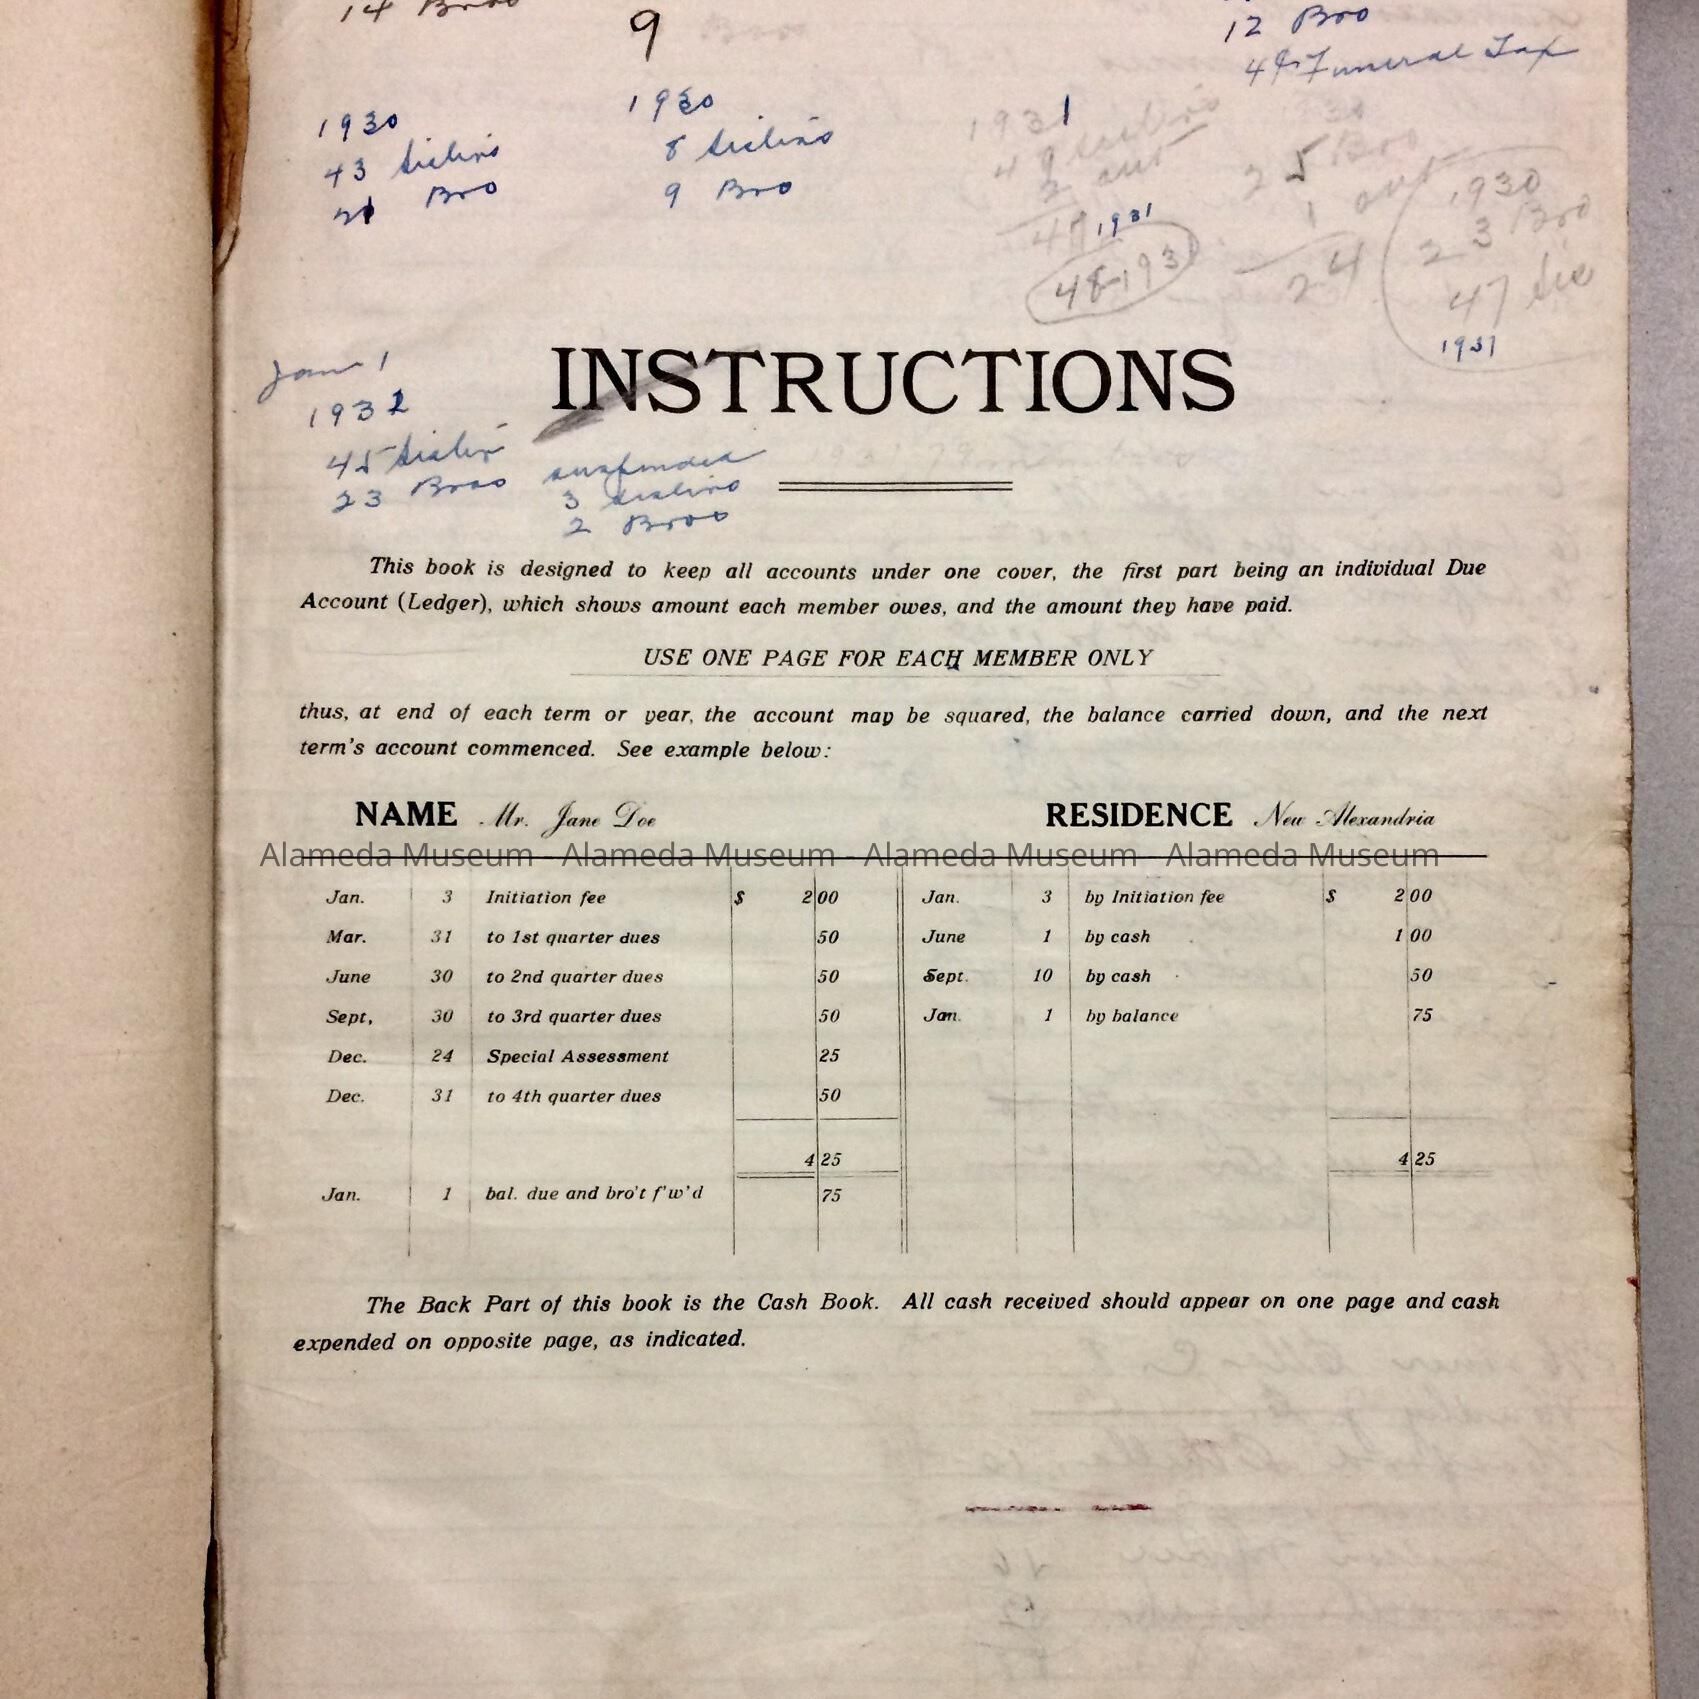 14 Bros
9
12 Bro
49 Funeral Tax
1930
43 Sisters
21 Bro
1930
8 Sisters
9 Bro
1931
49 Sisters
2 out
1931
48-1931
25 Bro
1 out
24
1930
23 Bro
47 Sis
1931
Jan 1
1932
45 Sisters
23 Bros
suspended
3 Sisters
2 Bros
INSTRUCTIONS
This book is designed to keep all accounts under one cover, the first part being an individual Due
Account (Ledger), which shows amount each member owes, and the amount they have paid.
USE ONE PAGE FOR EACH MEMBER ONLY
thus, at end of each term or year, the account may be squared, the balance carried down, and the next
term's account commenced. See example below:
NAME Mr. Jane Doe RESIDENCE New Alexandria
Alameda Museum - Alameda Museum - Alameda Museum - Alameda Museum
Jan. 3 Initiation fee $ 2 00 Jan. 3 by Initiation fee $ 2 00
Mar. 31 to 1st quarter dues 50 June 1 by cash 1 00
June 30 to 2nd quarter dues 50 Sept. 10 by cash 50
Sept, 30 to 3rd quarter dues 50 Jan. 1 by balance 75
Dec. 24 Special Assessment 25
Dec. 31 to 4th quarter dues 50
4 25 4 25
Jan. 1 bal. due and bro't f'w'd 75
The Back Part of this book is the Cash Book. All cash received should appear on one page and cash
expended on opposite page, as indicated.